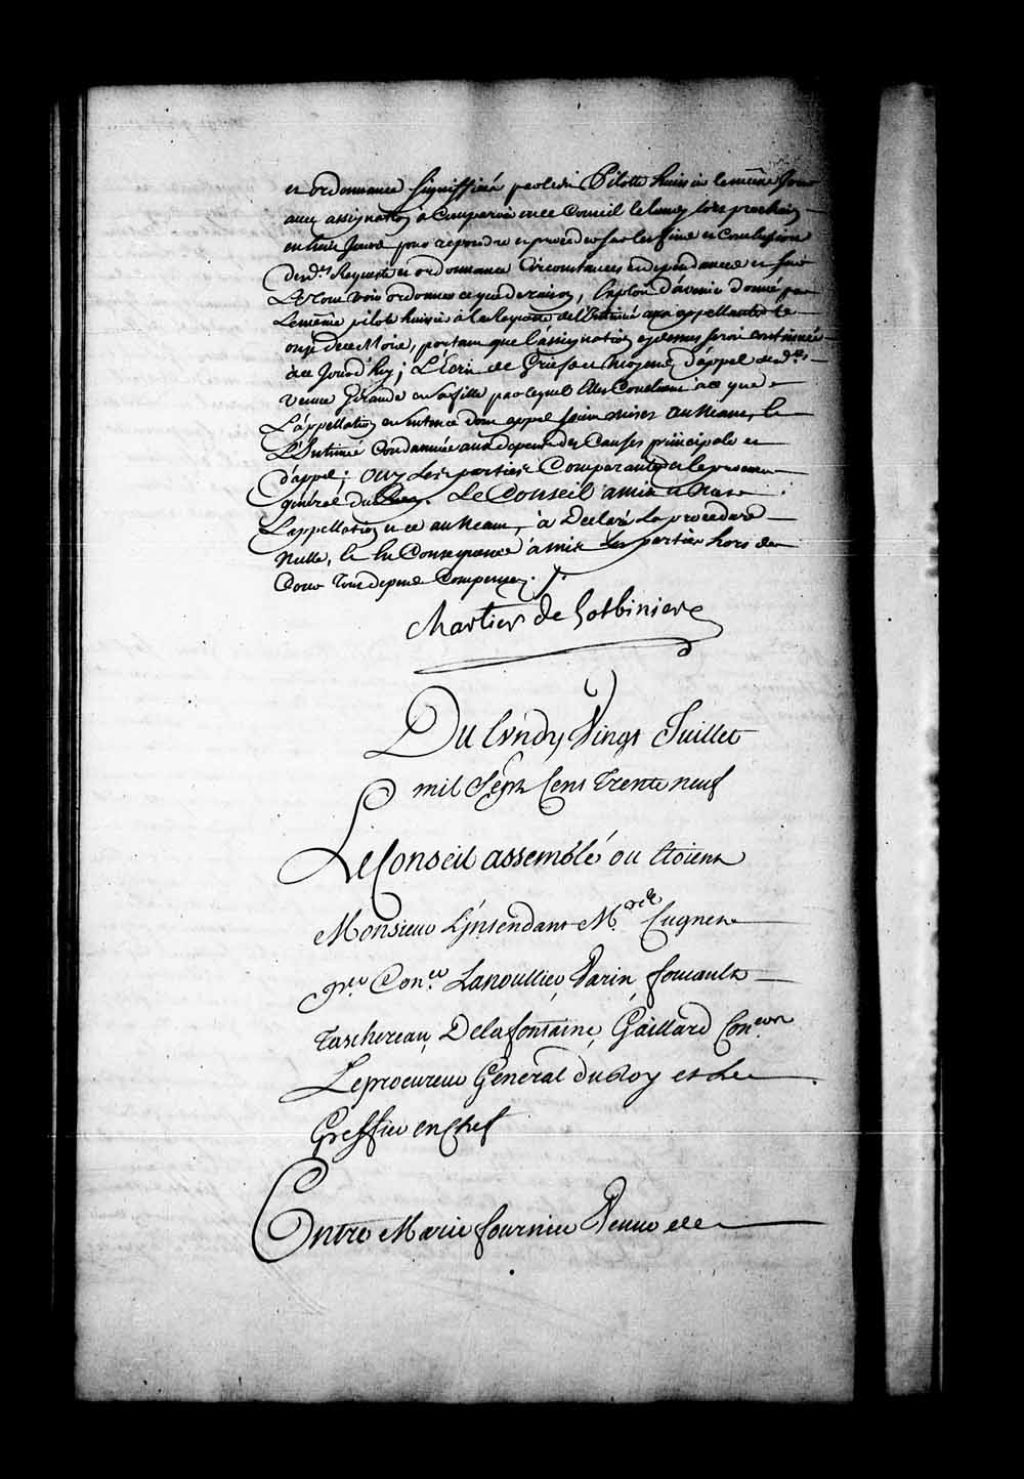 et ordonnance signiffiée par ledit Pilotte huissier le même Jour
avec assignation à Comparoir en ce Conseil le lundy lors prochain
en huit Jours pour repondre et proceder sur les fins et Conclusions
desd. Requeste et ordonnance Circonstances et dependances et sur
Le tout voir ordonner ce que de raison, l'exploit d'avenir donné par
Le même pilote huissier à la Requeste de l'Intimé aux appellantes le
onze de ce Mois, portant que l'assignation cy dessus seroit continuée
à ce Jourd'huy; L'Ecrit de Griefs et moyens d'appel desd.
veuve Girarde et sa fille par lequel Elles Concluent à ce que
L'appellation et sentence dont appel soient mises au Neant, le
L'Intimé Condamné aux depens des Causes principale et
d'appel; Ouy Les parties Comparantes et le procureur
général du Roy. Le Conseil a mis et met
L'appellation et ce au Neant, a Declaré La procedure
Nulle, et En Consequence a mis Les parties hors de
Cour Tous depens Compensez.
Chartier de Lotbiniere
Du Lundy Vingt Juillet
mil Sept Cent Trente neuf
Le Conseil assemblé ou Etoient
Monsieur L'jntendant M. Cugnet
pr. Con.er Lanoullier, Varin, foucault
Taschereau, Delafontaine, Gaillard Con.ers
Le procureur General du Roy et Le
Greffier en Chef
Entre Marie fournier Veuve de